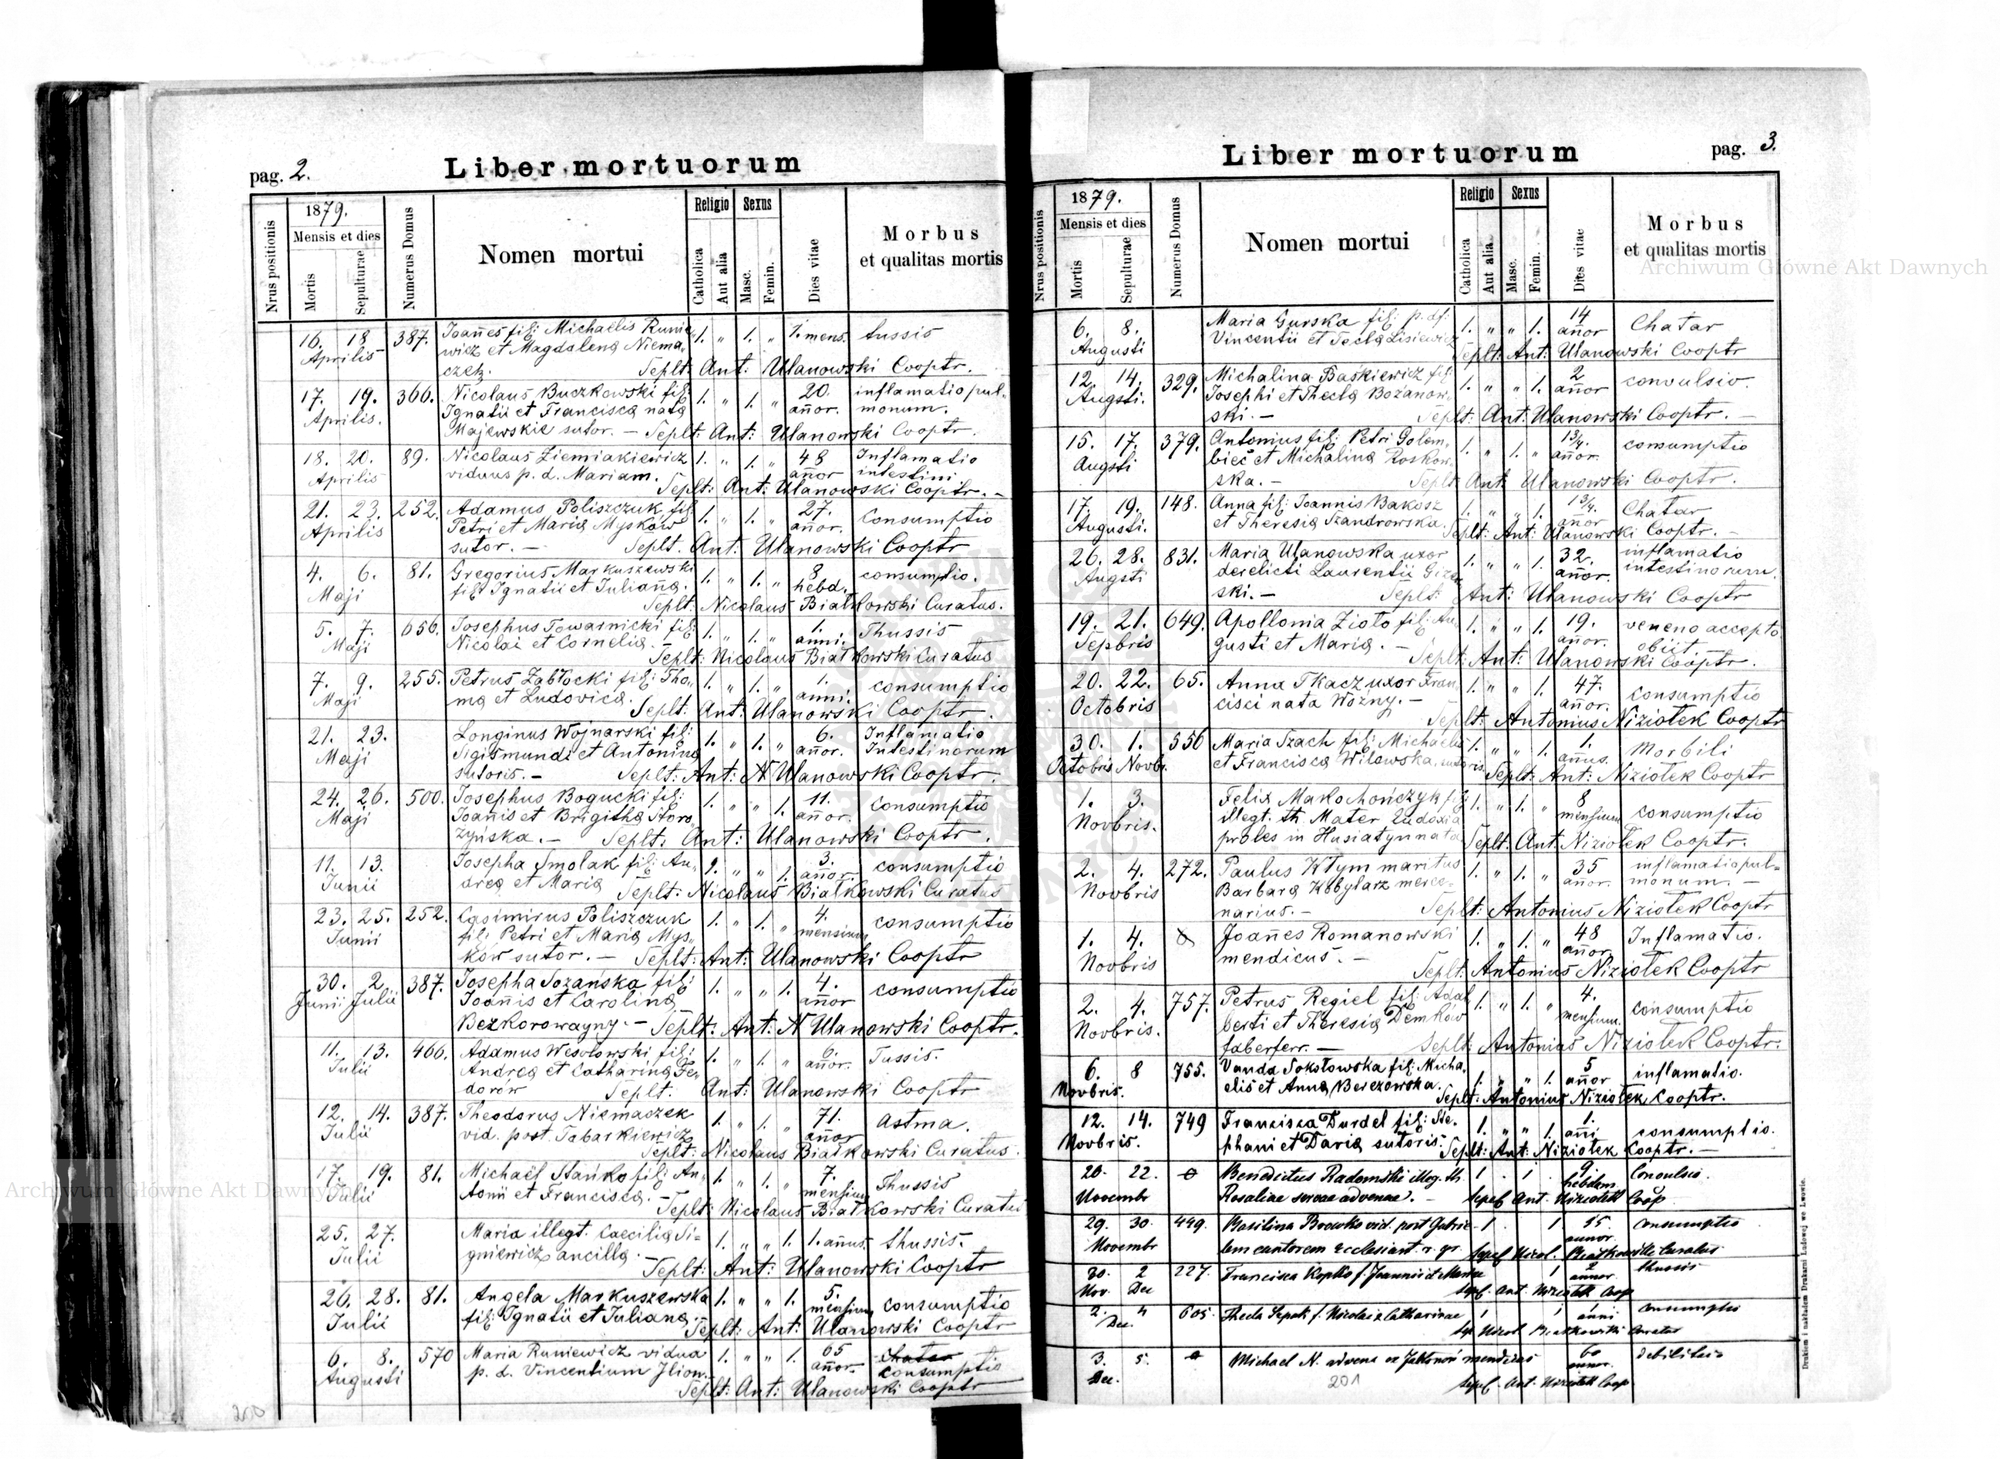 pag. 2.
Liber mortuorum
Nrus positionis
1879.
Mensis et dies
Mortis
Sepulturae
Numerus Domus
Nomen mortui
Religio
Catholica
Aut alia
Sexus
Masc.
Femin.
Dies vitae
Morbus
et qualitas mortis
16. 18 387. Joañes fil: Michaelis Runie 1. " 1. " 1. mens. tussis
Aprilis wicz et Magdalena Niema
czek. Seplt: Ant: Ulanowski Cooptr.
17. 19. 366. Nicolaus Buczkowski fil: 1. " 1. " 20. inflamatio pul-
Aprilis. Ignatii et Francisca nata añor. monum.
Majewskie sutor. — Seplt: Ant: Ulanowski Cooptr.
18. 20. 89. Nicolaus Ziemiakiewicz 1. " 1. " 48 Inflamatio
Aprilis viduus p. d. Mariam. añor intestini
Seplt: Ant: Ulanowski Cooptr. —
21. 23. 252. Adamus Poliszczuk fil: 1. " 1. " 27. Consumptio
Aprilis Petri et Maria Myskow añor.
sutor. — Seplt. Ant: Ulanowski Cooptr
4. 6. 81. Gregorius Markuszewski 1. " 1. " 8 consumptio.
Maji fil: Ignatii et Juliana. hebd.
Seplt: Nicolaus Białkowski Curatus.
5. 7. 656. Josephus Towarnicki fil: 1. " 1. " 1. Thussis
Maji Nicolai et Cornelia. anni.
Seplt: Nicolaus Białkowski Curatus
7. 9. 255. Petrus Zabłocki fil: Tho- 1. " 1. " 1. consumptio
Maji ma et Ludovica. anni.
Seplt: Ant: Ulanowski Cooptr.
21. 23. Longinus Wojnarski fil: 1. " 1. " 6. Inflamatio
Maji Sigismundi et Antonina añor. Intestinorum
sutoris. — Seplt: Ant: N Ulanowski Cooptr.
24. 26. 500. Josephus Bogucki fil: 1. " " 1. 11. consumptio
Maji Joañis et Brigitha añor.
zyńska. — Seplt: Ant: Ulanowski Cooptr.
11. 13. Josepha Smolak fil: An- " " 1. 3. consumptio
Junii drea et Maria añor.
Seplt: Nicolaus Białkowski Curatus
23. 25. 252. Casimirus Poliszczuk 1. " 1. " 4. consumptio
Junii fil: Petri et Maria Mys- mensium
kow sutor. — Seplt: Ant: Ulanowski Cooptr
30. 2 387. Josepha Sozańska fil: 1. " " 1. 4. consumptio
Junii Julii Joañis et Carolina añor
Bezkorowayny. — Seplt: Ant: N Ulanowski Cooptr.
11. 13. 466. Adamus Wesołowski fil: 1. " 1. " 6. Tussis.
Julii Andrea et Catharina Fe- añor.
dorów Seplt. Ant: Ulanowski Cooptr
12. 14. 387. Theodorus Niemaczek 1. " 1. " 71. Astma.
Julii vid. post Tabarkiewicz añor
Seplt: Nicolaus Białkowski Curatus.
17. 19. 81. Michaël Stańko fil: An- 1. " 1. " 7. Thussis
Julii tonii et Francisca. — mensium
Seplt: Nicolaus Białkowski Curatus
25. 27. Maria illegt. Caecilia Si- 1. " " 1. 1. añus. thussis.
Julii gniewicz ancilla. —
Seplt: Ant: Ulanowski Cooptr
26. 28. 81. Angela Markuszewska 1. " " 1. 5. consumptio
Julii fil: Ignatii et Juliana. mensium
Seplt: Ant: Ulanowski Cooptr
6. 8. 570 Maria Runiewicz vidua 1. " " 1. 65 chatar
Augusti p. d. Vincentium añor. consumptio
Seplt: Ant: Ulanowski Cooptr
200
Liber mortuorum
pag. 3.
Nrus positionis
1879.
Mensis et dies
Mortis
Sepulturae
Numerus Domus
Nomen mortui
Religio
Catholica
Aut alia
Sexus
Masc.
Femin.
Dies vitae
Morbus
et qualitas mortis
6. 8. Maria Gurska fil: p. df: 1. " " 1. 14 Chatar
Augusti Vincentii et Tecla Lisiewicz añor
Seplt: Ant: Ulanowski Cooptr
12. 14. 329. Michalina Baśkiewicz fil: 1. " " 1. 2 convulsio.
Augsti. Josephi et Thecla Bożanow- añor
ski. — Seplt: Ant: Ulanowski Cooptr. —
15. 17. 379. Antonius fil: Petri Golem- 1. " 1. " 1 3/4. consumptio
Augsti bieć et Michalina Roskow- añor.
ska. — Seplt: Ant: Ulanowski Cooptr.
17. 19. 148. Anna fil: Joannis Bakosz 1. " " 1. 1 3/4. Chatar
Augusti. et Theresia Szandrowska. añor
Seplt: Ant: Ulanowski Cooptr. —
26. 28. 831. Maria Ulanowska uxor 1. " " 1. 32. inflamatio
Augsti derelicti Laurentii añor. intestinorum.
ski. — Seplt: Ant: Ulanowski Cooptr
19. 21. 649. Apollonia Zioło fil: Au- 1. " " 1. 19. veneno accepto
Sepbris gusti et Maria. — añor. obiit. —
Seplt: Ant: Ulanowski Cooptr.
20. 22. 65. Anna Tkacz uxor Fran- 1. " " 1. 47. consumptio
Octobris cisci nata Woźny. — añor.
Seplt: Antonius Niziołek Cooptr
30. 1. 550 Maria Szach fil: Michaelis 1. " " 1. 1. Morbili
Octobris Novbr. et Francisca Wilowska. sutoris. añus.
Seplt: Ant: Niziołek Cooptr
1. 3. Felix Makohończyk fil: 1. " 1. " 8 consumptio
Novbris. illegt. th. Mater Eudoxia mensium
proles in Husiatyn nata Seplt: Ant: Niziołek Cooptr.
2. 4. 272. Paulus Kłym maritus 1. " 1. " 35 inflamatio pul-
Novbris Barbara Kobylarz merce- añor. monum. —
narius. — Seplt: Antonius Niziołek Cooptr
1. 4. Joañes Romanowski 1. " 1. " 48 Inflamatio.
Novbris mendicus. — añor.
Seplt: Antonius Niziołek Cooptr
2. 4. 757. Petrus Regiel fil: Adal 1. " 1. " 4. consumptio
Novbris. berti et Theresia Demkow mensium.
faberferr. — Seplt: Antonius Niziołek Cooptr.
6. 8 755. Vanda Sokołowska fil: Micha 1. " " 1. 5 inflamatio.
Novbris. elis et Anna Berezowska. añor
Seplt: Antonius Niziołek Cooptr.
12. 14. 749 Francisca Durdel fil: Ste- 1. " " 1. 1. consumptio.
Novbris. phani et Daria sutoris. añi
Seplt: Ant: Niziołek Cooptr. —
20. 22. Benedictus Radomski illeg. th. 1 1. 9 Convulsio.
Novembr Rosaliae servae advenae. — hebdom.
Sepel. Ant. Niziołek Coop.
29. 30. 449. Basilina vid. post Gabrie- 1 1 15 consumptio
Novembr lem cantorem Ecclesiae rit. gr. annor.
Sepel. Nicol. Białkowski Curatus
30. 2 227. Francisca Kopko f. Joannis et Mariae 1 2 thussis
Nov. Dec annor.
Sepel. Ant. Niziołek Coop
2. 4 605. Thecla f. Nicolai et Catharinae 1 1 1 consumptio
Dec. anni
Sep. Nicol. Białkowski Curatus
3. 5. Michael N. advena ex mendicus 60 debilitas
Dec. annor.
Sepel. Ant. Niziołek Coop
201
Drukiem i nakładem Drukarni Ludowej we Lwowie.
Archiwum Główne Akt Dawnych
Archiwum Główne Akt Dawnych